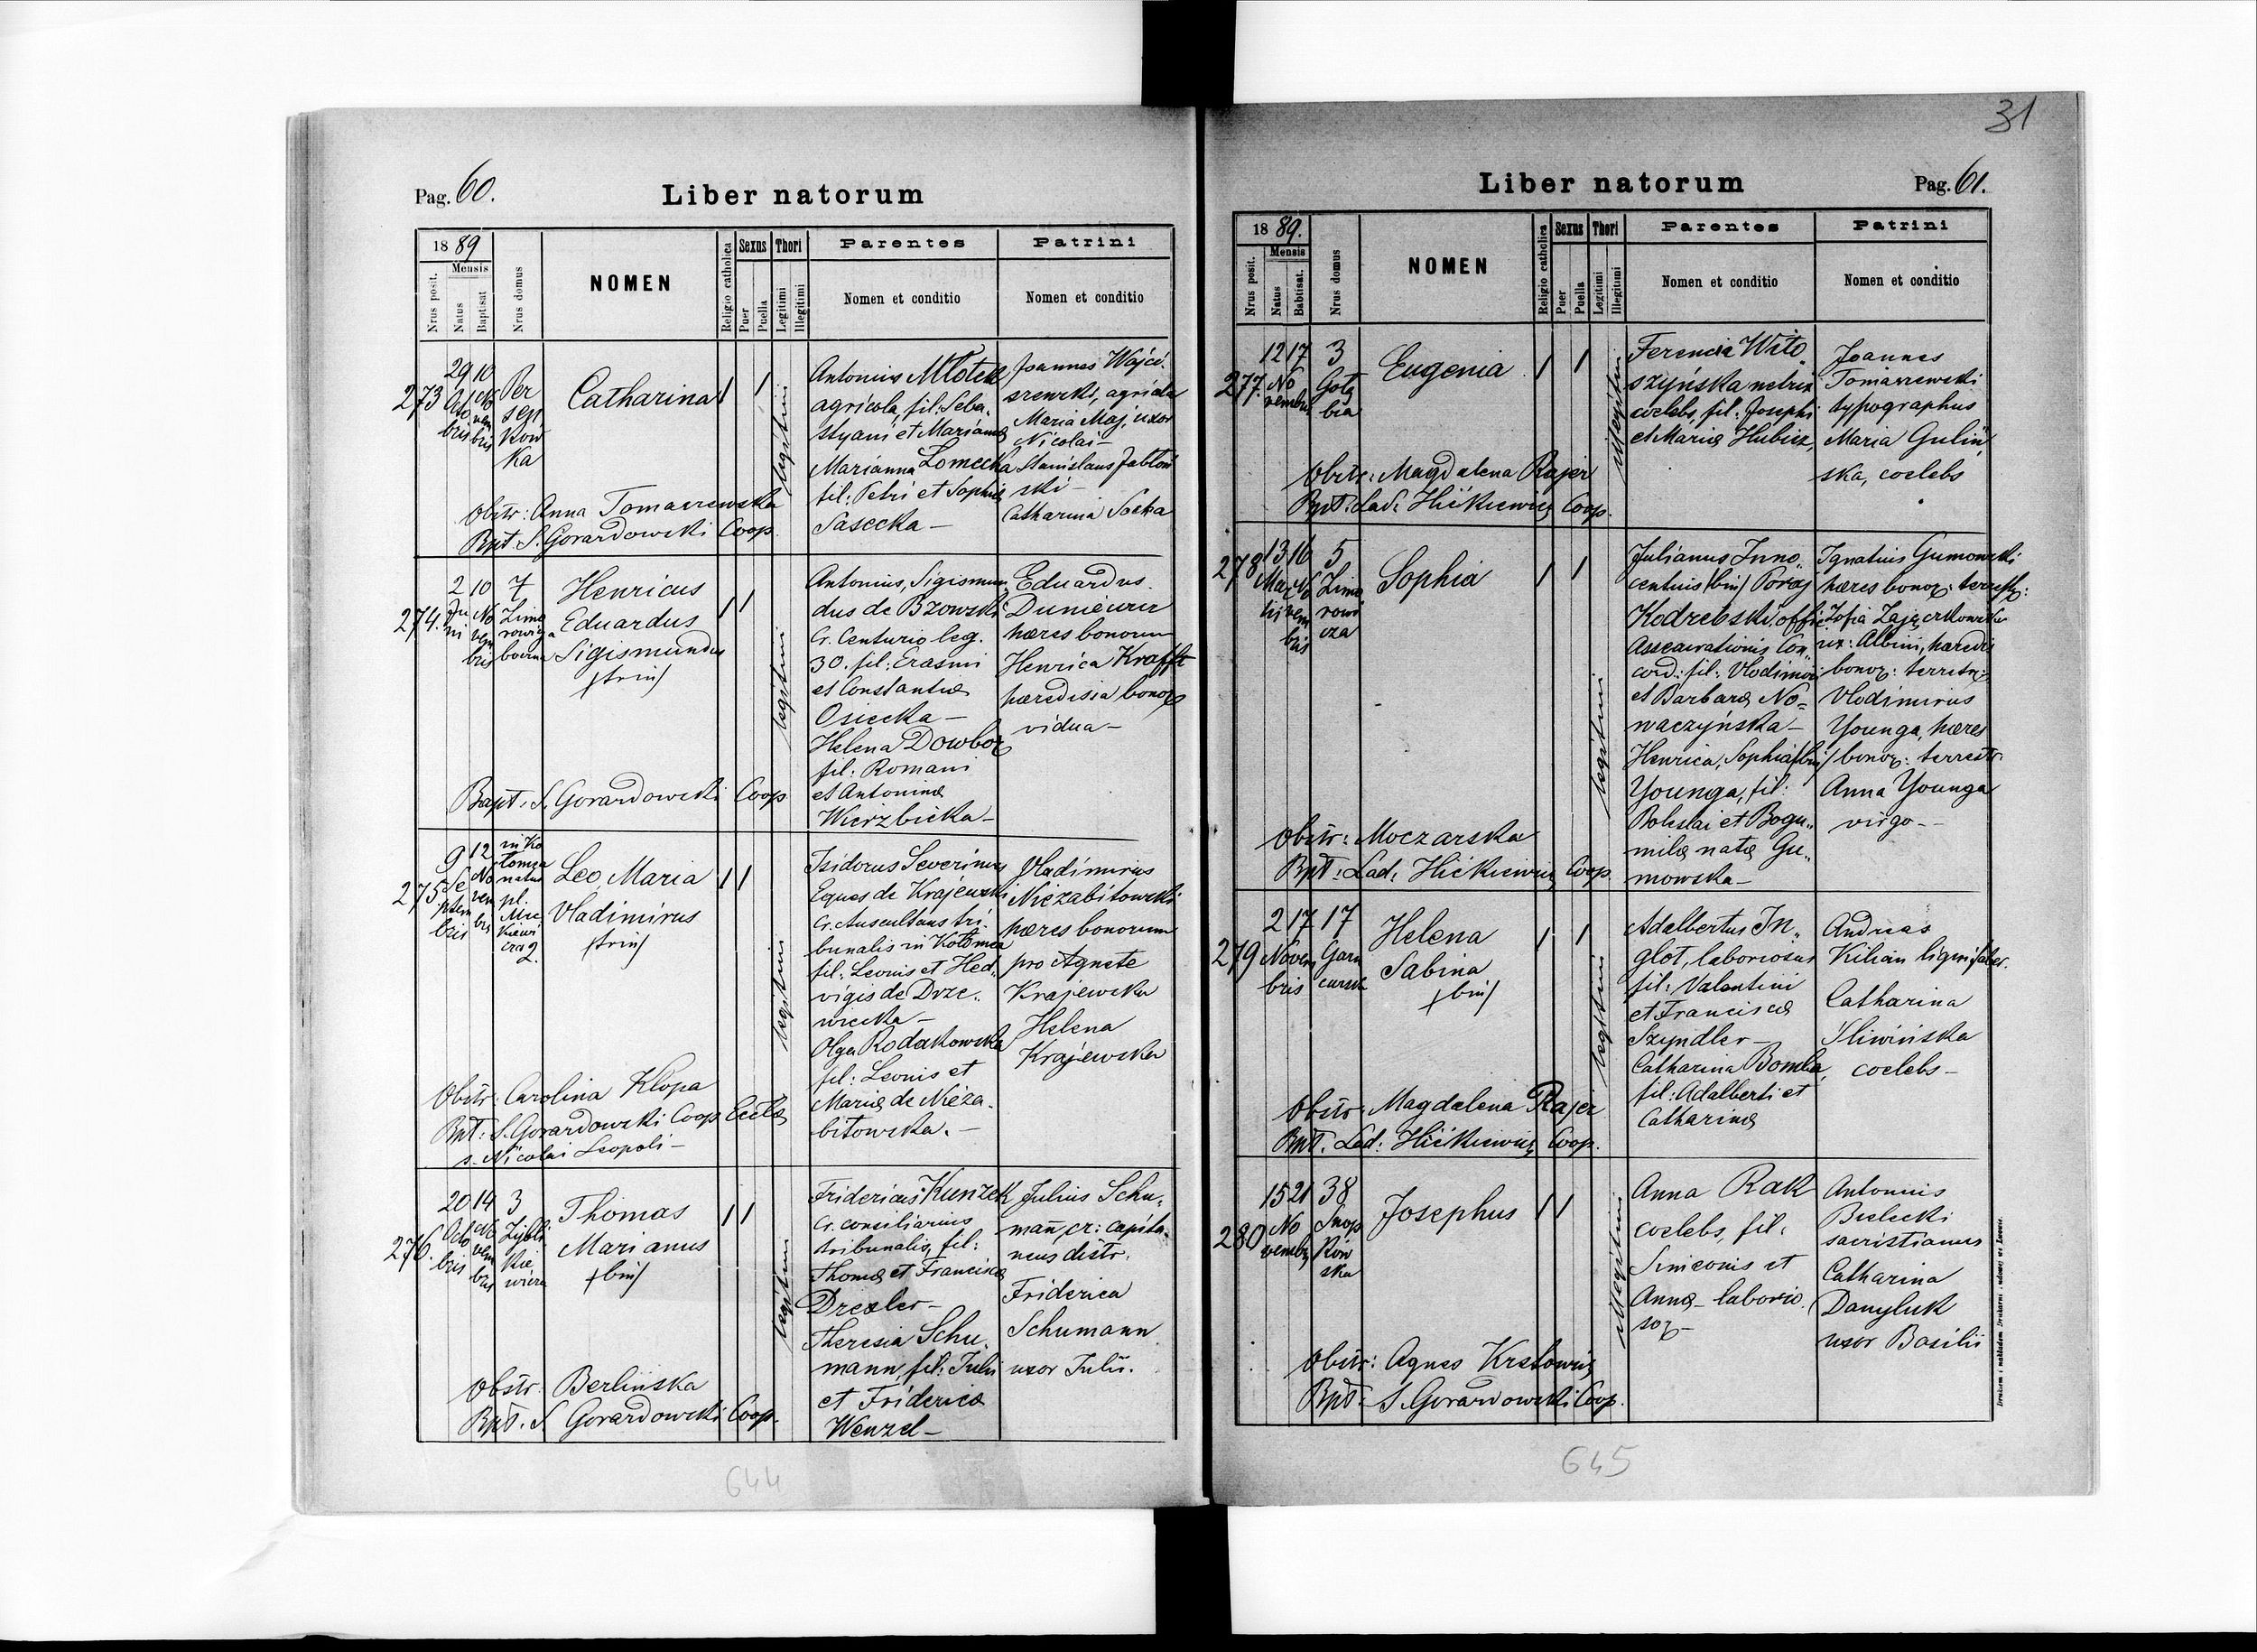 Pag. 60.
Liber natorum
1889
Mensis
Nrus posit.
Natus
Baptisat
Nrus domus
NOMEN
Religio catholica
Sexus
Puer
Puella
Thori
Legitimi
Illegitimi
Parentes
Nomen et conditio
Patrini
Nomen et conditio
273
29 10
Octo
bris
No
vem
bris
Per
sen
kow
ka
Catharina
legitimi
Antonius Młotek
agricola, fil: Seba-
styani et Mariannæ
Marianna Lomecka
fil: Petri et Sophiæ
Sasecka —
Joannes Wajci-
szewski, agricola
Maria Maj, uxor
Nicolai —
Stanislaus Jabłoń
ski —
Catharina Socha
Obstr: Anna Tomaszewska
Bpt. S. Gorardowski Coop.
274.
2 10 7
Ju
ni
No
vem
bris
Zimo
rowiga
boczna
Henricus
Eduardus
Sigismundus
/trin/
legitimi
Antonius, Sigismun
dus de Bzowski
Cr. Centurio leg.
30. fil: Erasmi
et Constantiæ
Osiecka —
Helena Dowbor
fil: Romani
et Antoninæ
Wierzbicka —
Eduardus
Dunieurer
hæres bonorum
Henrica Krafft
hæredisia bonor
vidua —
Bapt: S. Gorardowski Coop
275.
9 12
Se
ptem
bris
No
vem
bris
in Ko
łomya
natus
pl.
Mic
kiewi
cza 2.
Leo, Maria
Vladimirus
/trin/
legitimi
Isidorus Severinus
Eques de Krajewski
Cr. Auscultans tri-
bunalis in Kołomea
fil: Leonis et Hed-
vigis de Drze-
wiecka —
Olga Rodakowska
fil: Leonis et
Mariæ de Nieza-
bitowska. —
Vladimirus
Niezabitowski
hæres bonorum
pro Agnete
Krajewska
Helena
Krajewska
Obstr: Carolina Klopa
Bpt: S. Gorardowski Coop Ecclæ
s. Nicolai Leopoli —
276.
20 14 3
Octo
bris
No
vem
bris
Zybli
kie
wicza
Thomas
Marianus
/bin/
legitimi
Fridericus Kunzek
Cr. consiliarius
tribunalis, fil:
Thomæ et Franciscæ
Drexler —
Theresia Schu-
mann, fil: Julii
et Fridericæ
Wenzel —
Julius Schu-
mañ, cr: capita-
neus distr.
Friderica
Schumann
uxor Julii.
Obstr. Berlinska
Bpt. S. Gorardowski Coop.
644
31
Liber natorum
Pag. 61.
1889.
Mensis
Nrus posit.
Natus
Babtisat.
Nrus domus
NOMEN
Religio catholica
Sexus
Puer
Puella
Thori
Legitimi
Illegitimi
Parentes
Nomen et conditio
Patrini
Nomen et conditio
277.
12 17 3
No
vembris
Gołę
bia
Eugenia
illegitimi
Ferencia Wito-
szyńska netrix
coelebs, fil: Josephi
et Mariæ Hubisz,
Joannes
Tomaszewski
typographus
Maria Guliń
ska, coelebs
Obstr: Magdalena Rajer
Bpt: Lad: Hićkiewicz Coop.
278
13 16 5
Mar
tii
No
vem
bris
Zimo
rowi
cza
Sophia
legitimi
Julianus Inno-
centius /bin/ Poraj
Kodrebski offic
Assecurationis Con-
cord: fil: Vlodimiri
et Barbaræ No-
waczyńska —
Henrica, Sophia /bin/
Younga, fil:
Boleslai et Bogu-
milæ natæ Gu-
mowska —
Ignatius Gumowski
hæres bonor: terrestr:
Zofia Zajączkowska
ux: Albini, hæredis
bonor: terrestr:
Vlodimirus
Younga, hæres
bonor: terrestr.
Anna Younga
virgo —
Obstr: Moczarska
Bpt: Lad: Hićkiewicz Coop
279
2 17 17
Novem
bris
Garn
carska
Helena
Sabina
/bin/
legitimi
Adelbertus In-
glot, laboriosus
fil: Valentini
et Franciscæ
Szyndler —
Catharina Bomba,
fil: Adalberti et
Catharinæ
Andreas
Kilian lignifaber.
Catharina
Śliwińska
coelebs —
Obstr: Magdalena Rajer
Bpt. Lad: Hićkiewicz Coop.
280
15 21 38
No
vembr
Snop
ków
ska
Josephus
illegitimi
Anna Rak
coelebs, fil:
Simeonis et
Annæ — laborio-
sor —
Antonius
Bielecki
sacristianus
Catharina
Danyluk
uxor Basilii
Obstr: Agnes Kretowicz
Bpt: S. Gorardowski Coop.
645